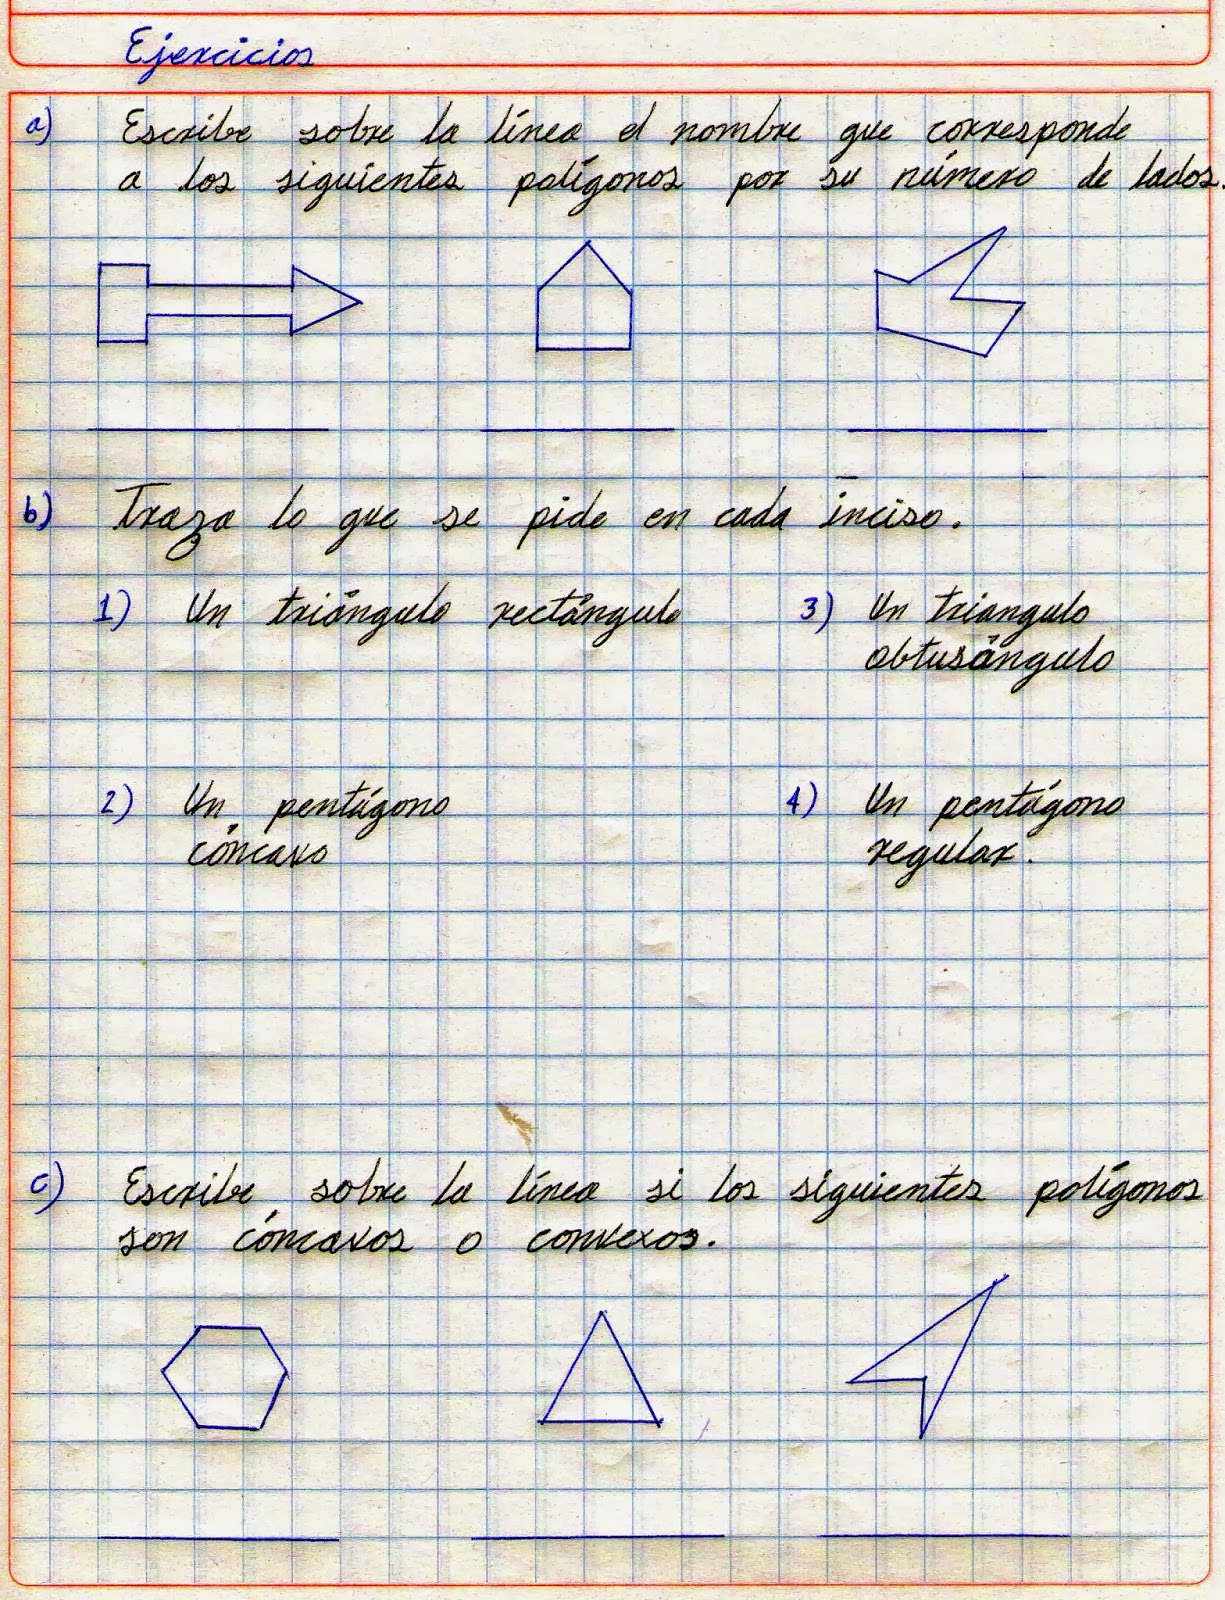 Ejercicios
a) Escribe sobre la línea el nombre que corresponde
a los siguientes polígonos por su número de lados.
b) Traza lo que se pide en cada inciso.
1) Un triángulo rectángulo
3) Un triangulo
obtusángulo
2) Un pentágono
cóncavo
4) Un pentágono
regular.
c) Escribe sobre la línea si los siguientes polígonos
son cóncavos o convexos.